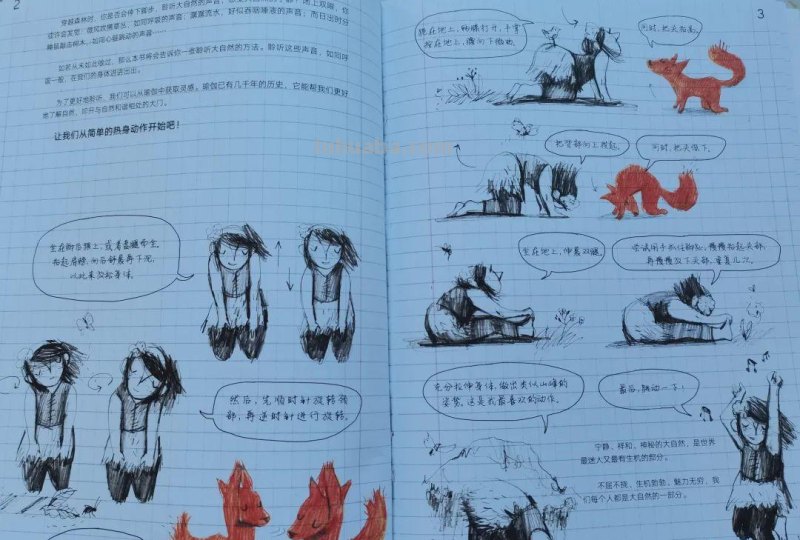 2
穿越森林时,你是否会停下脚步,聆听大自然的声音,
如若从未如此做过,那么本书将会告诉你一些聆听大自然的方法。聆听这些声音,如同呼
吸一般,在我们的身体进进出出。
为了更好地聆听,我们可以从瑜伽中获取灵感。瑜伽已有几千年的历史,它能帮我们更好
地了解自然,叩开与自然和谐相处的大门。
让我们从简单的热身动作开始吧!
坐在脚后跟上,或者盘腿而坐。
抬起肩膀,向后舒展再下沉,
以此来放松身体。
然后,先顺时针旋转颈
部,再逆时针进行旋转。
3
跪在地上,胳膊打开,手掌
按在地上,腰向下拗曲。
同时,把头抬高。
把背部向上拱起。
同时,把头低下。
坐在地上,伸展双腿。
尝试用手抓住脚趾,慢慢抬起头部,
再慢慢放下头部,重复几次。
充分拉伸身体,做出类似山峰的
姿势。这是我最喜欢的动作。
最后,跳动一下!
宁静、祥和、神秘的大自然,是世界
最迷人又最有生机的部分。
不屈不挠、生机勃勃、魅力无穷,我
们每个人都是大自然的一部分。